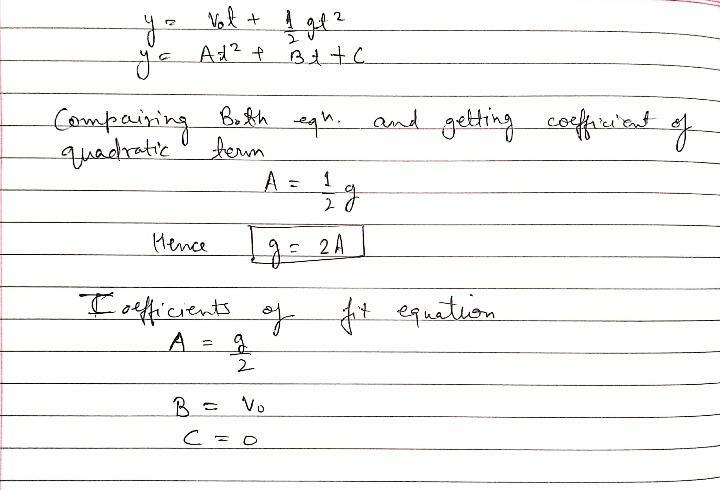 y = V₀t + 1/2 gt²
y = At² + Bt + C
Compairing Both eqn. and getting coefficient of
quadratic term
A = 1/2 g
Hence g = 2A
Coefficients of fit equation
A = g/2
B = V₀
C = 0